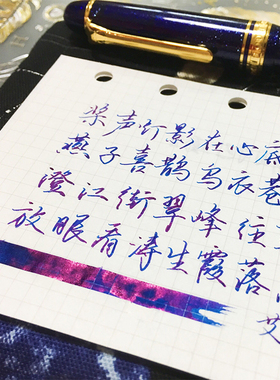 桨声灯影在心底
燕子喜鹊乌衣巷
澄江街翠峰往
放眼看涛生霞落
艾